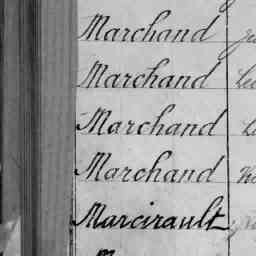 Marchand
Marchand
Marchand
Marchand
Marcirault